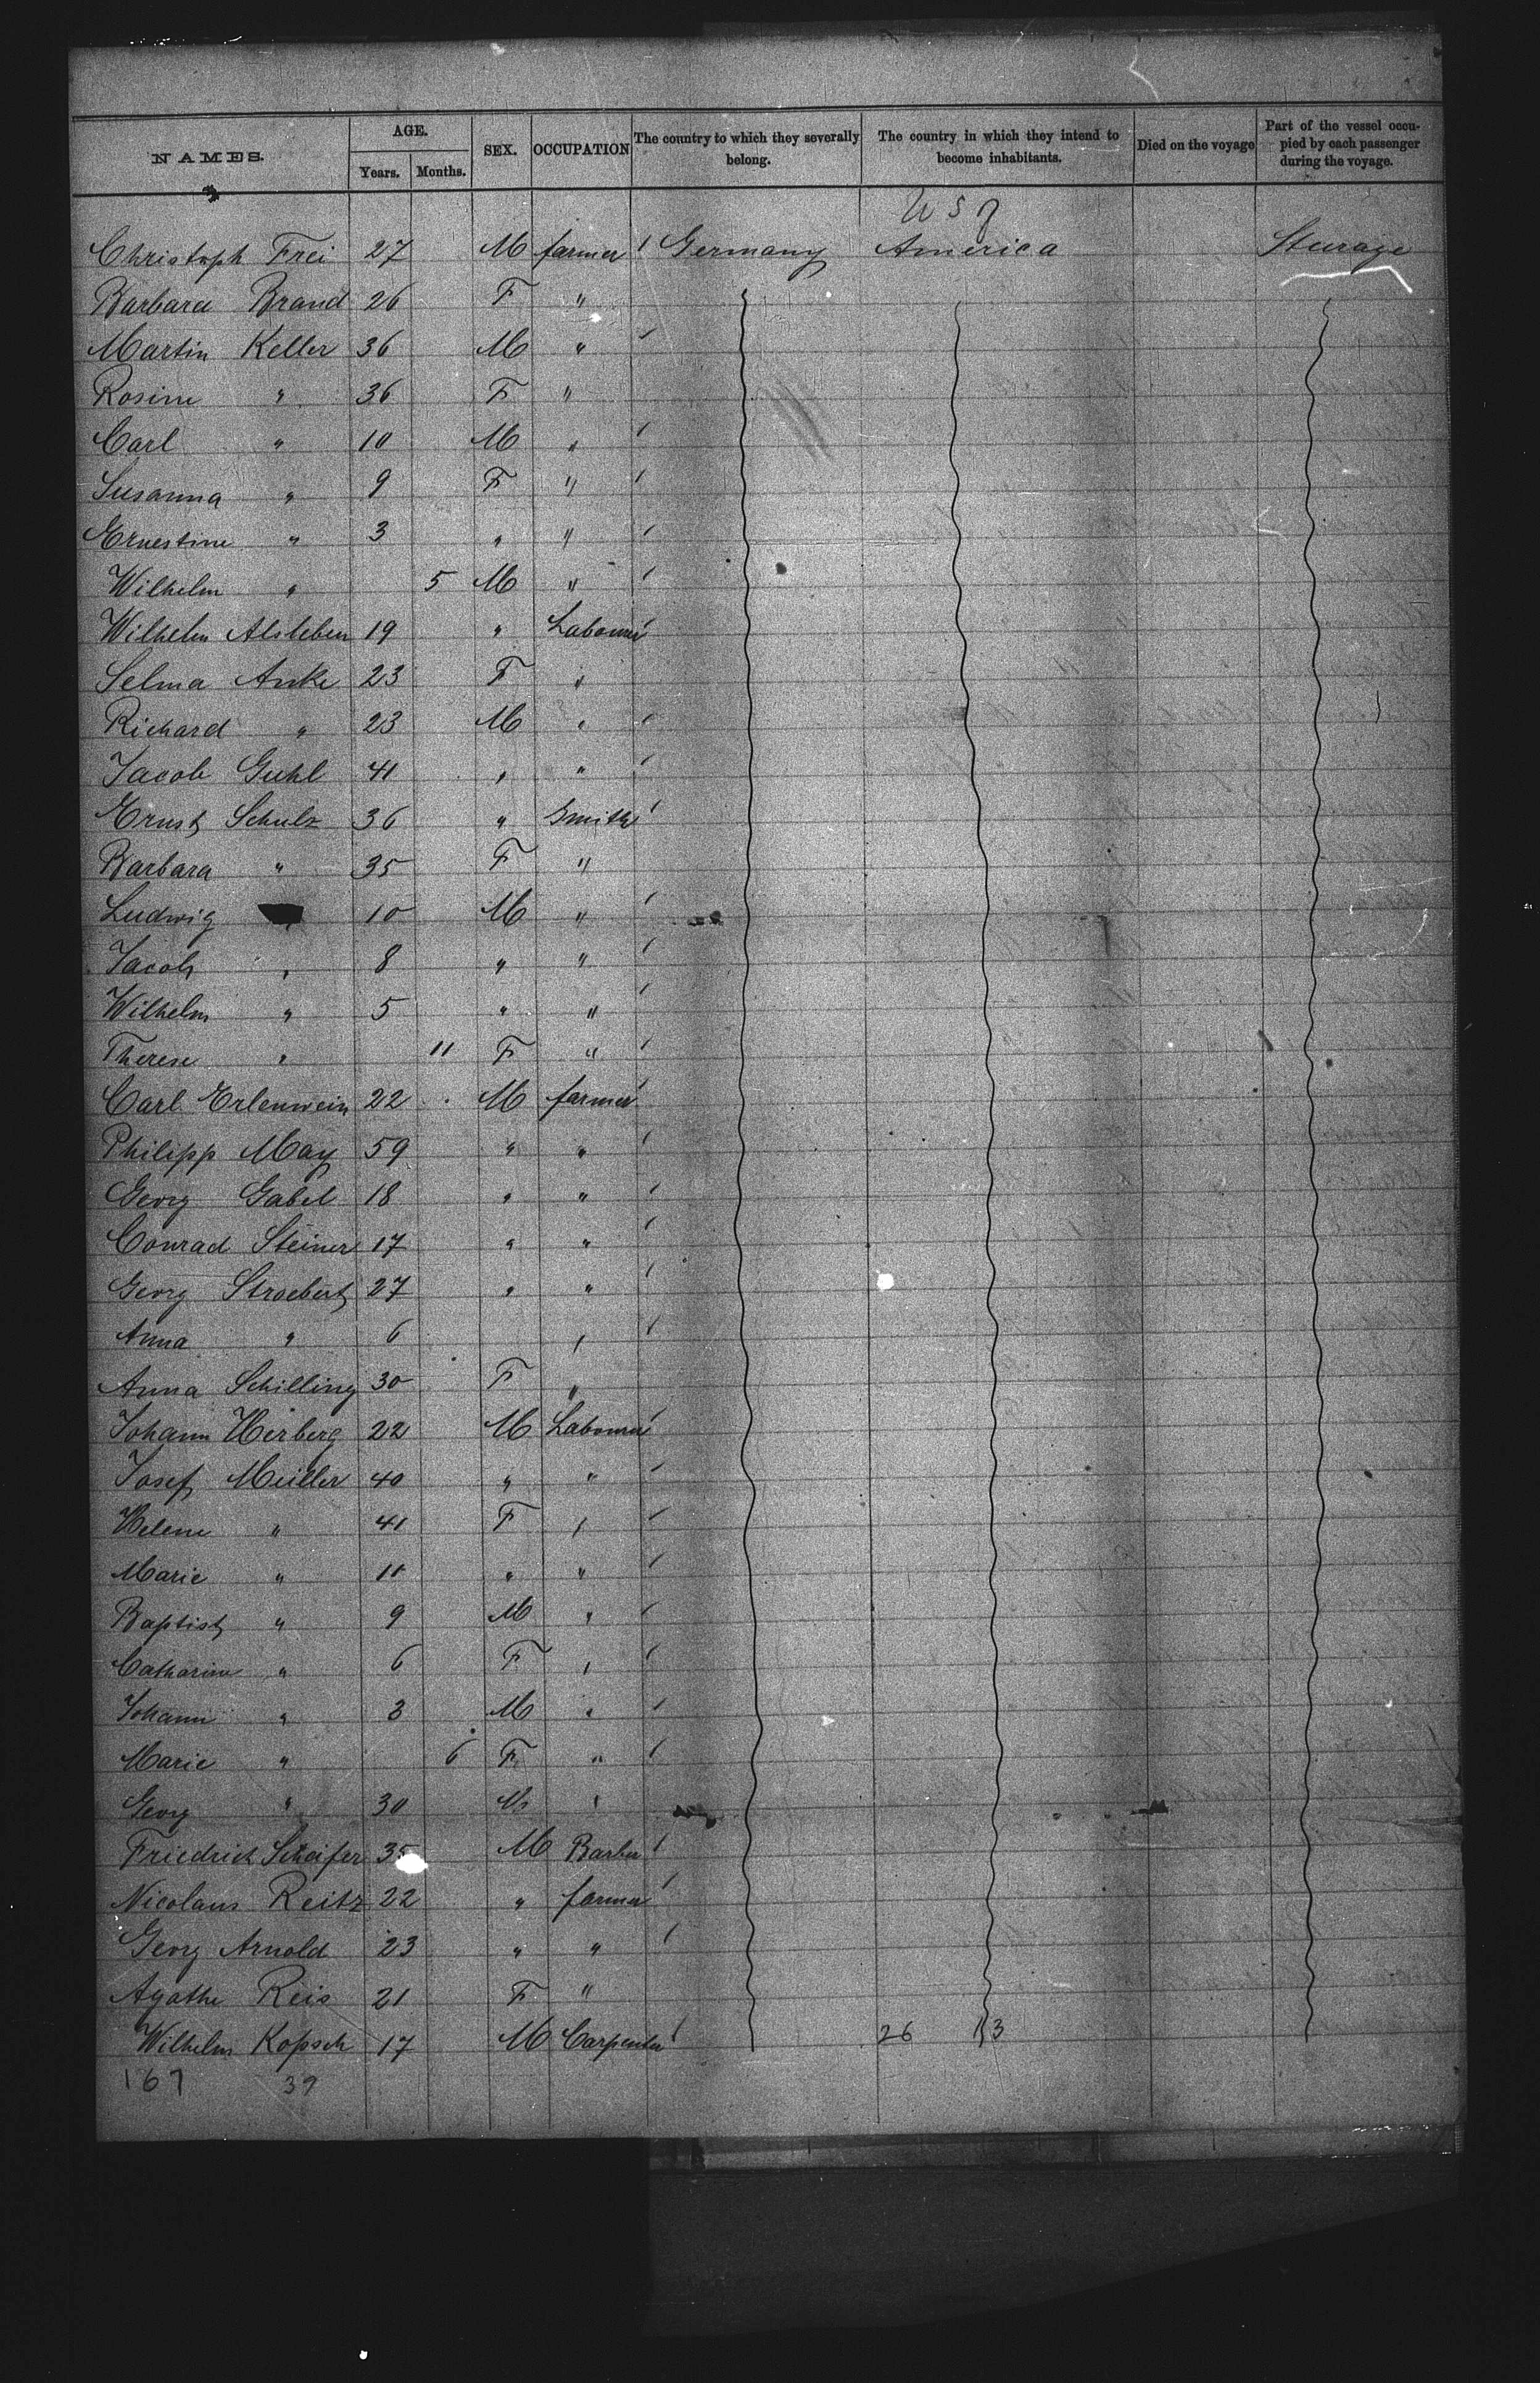 NAMES. AGE. Years. Months. SEX. OCCUPATION The country to which they severally belong. The country in which they intend to become inhabitants. Died on the voyage Part of the vessel occupied by each passenger during the voyage.
Christoph Frei 27 M farmer / Germany America Steerage
Barbara Brand 26 F "
Martin Keller 36 M " /
Rosine " 36 F "
Carl " 10 M " /
Susanna " 9 F " /
Ernestine " 3 " " /
Wilhelm " 5 M " /
Wilhelm Alsleben 19 " Labourer /
Selma Anke 23 F "
Richard " 23 M " /
Jacob Guhl 41 " " /
Ernst Schulz 36 " Smith /
Barbara " 35 F "
Ludwig 10 M " /
Jacob " 8 " " /
Wilhelm " 5 " " /
Therese " 11 F " /
Carl Erlenwein 22 M farmer /
Philipp May 59 " " /
Georg Gabel 18 " " /
Conrad Steiner 17 " " /
Georg Stroebert 27 " " /
Anna " 6 " /
Anna Schilling 30 F "
Johann Herberg 22 M Labourer /
Josef Meiller 40 " " /
Helene " 41 F " /
Marie " 11 " " /
Baptist " 9 M " /
Catharine " 6 F " /
Johann " 3 M " /
Marie " 6 F " /
Georg " 30 M "
Friedrich Scheifer 35 M Barber /
Nicolaus Reitz 22 " farmer /
Georg Arnold 23 " " /
Agathe Reis 21 F "
Wilhelm Kopsch 17 M Carpenter / 26 13
167 39